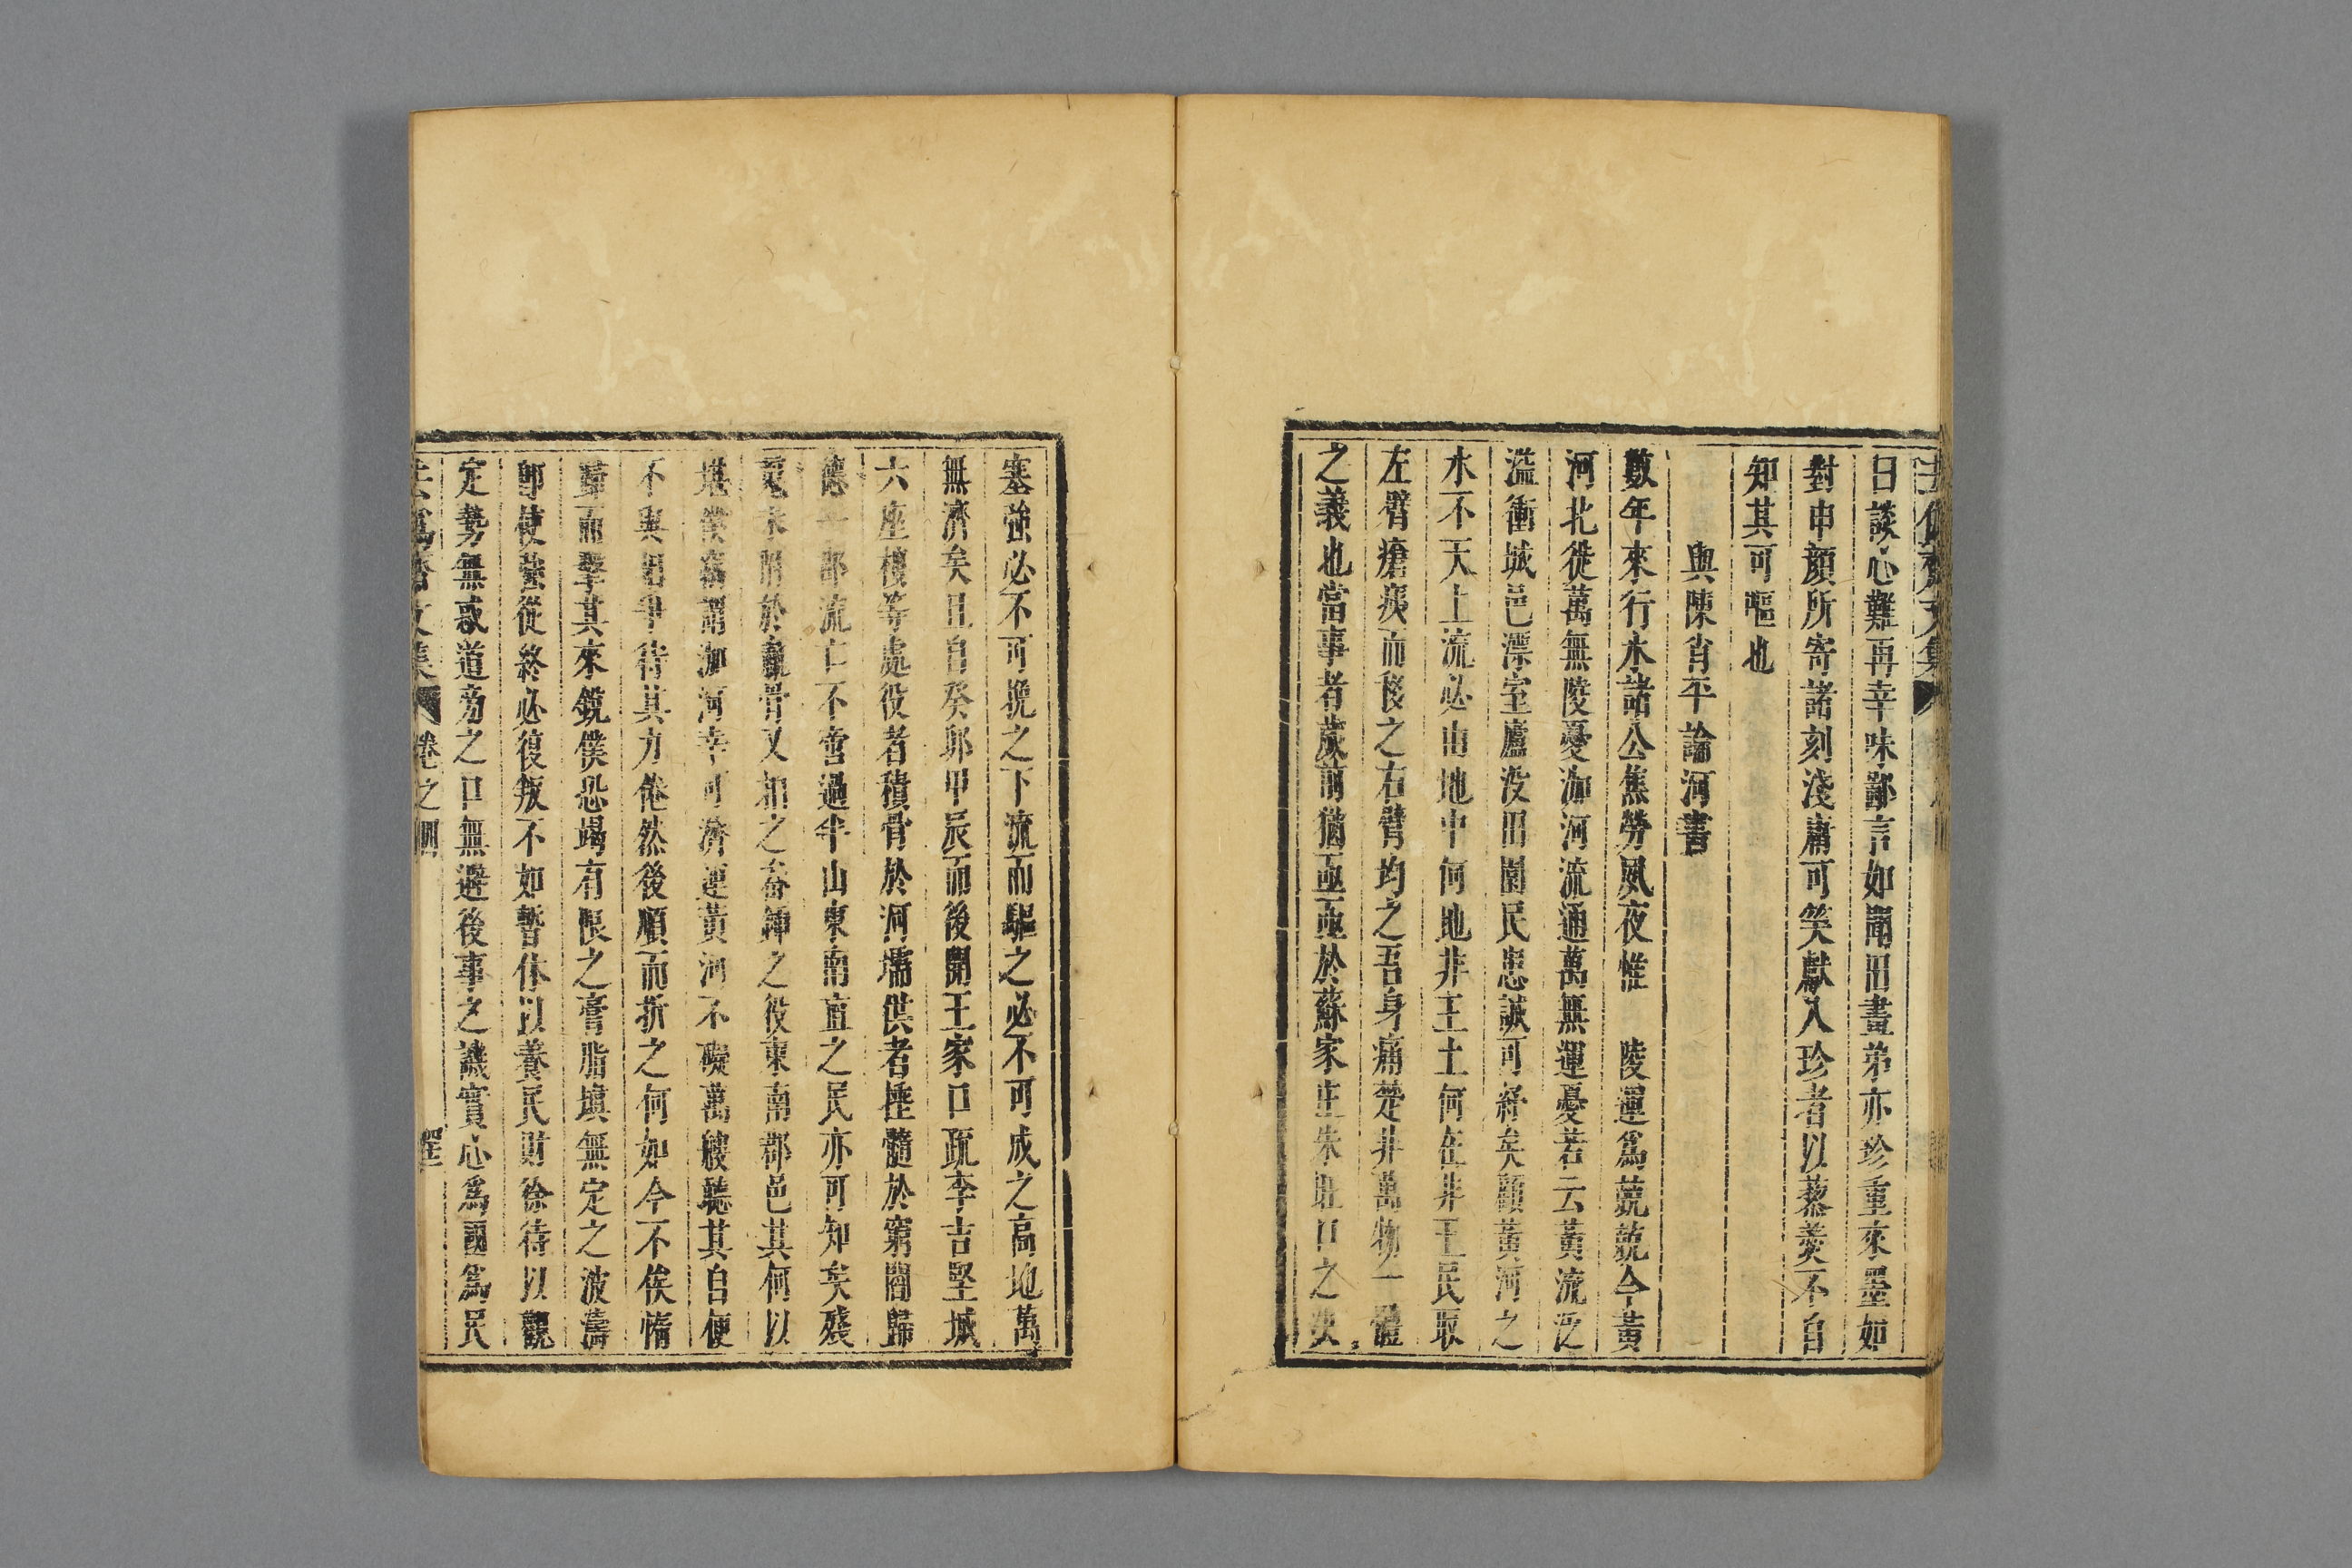 日談心難再幸味鄙言如聞旧畫弟亦珍重來墨如
對申顏所寄諸刻淺庸可笑獻入珍者以藜羹不自
知其可嘔也
與陳肖平論河書
數年來行水諸公焦勞夙夜惟 陵運爲兢兢今黃
河北徙萬無陵憂泇河流通萬無運憂若云黃流泛
溢衝城邑漂室廬没田園民患誠可紓矣顧黃河之
水不天上流必由地中何地非王土何在非王民取
左臂瘡痍而移之右臂均之吾身痛楚非萬物一體
之義也當事者蒇前猶亟亟於蘇家庄朱旺口之
塞強必不可挽之下流而驅之必不可成之高地萬
無濟矣且自癸卯甲辰而後開王家口疏李吉堅城
六座樓等處役者積骨於河壖供者捶髓於窮閻歸
德一郡流亡不啻過半山東南直之民亦可知矣殘
未 於 骨又 之畚鍤之役東南郡邑其何以
堪僕竊謂泇河幸可濟運黃河不礙萬艘聽其自便
不與相爭待其力倦然後順而折之何如今不俟惰
歸而擊其來銳僕恐竭有限之膏脂塡無定之波濤
即使強從終必復叛不如暫休以養民財徐待以觀
定勢無惑道旁之口無避後事之譏實心爲國爲民
去僞齋文集 卷之四